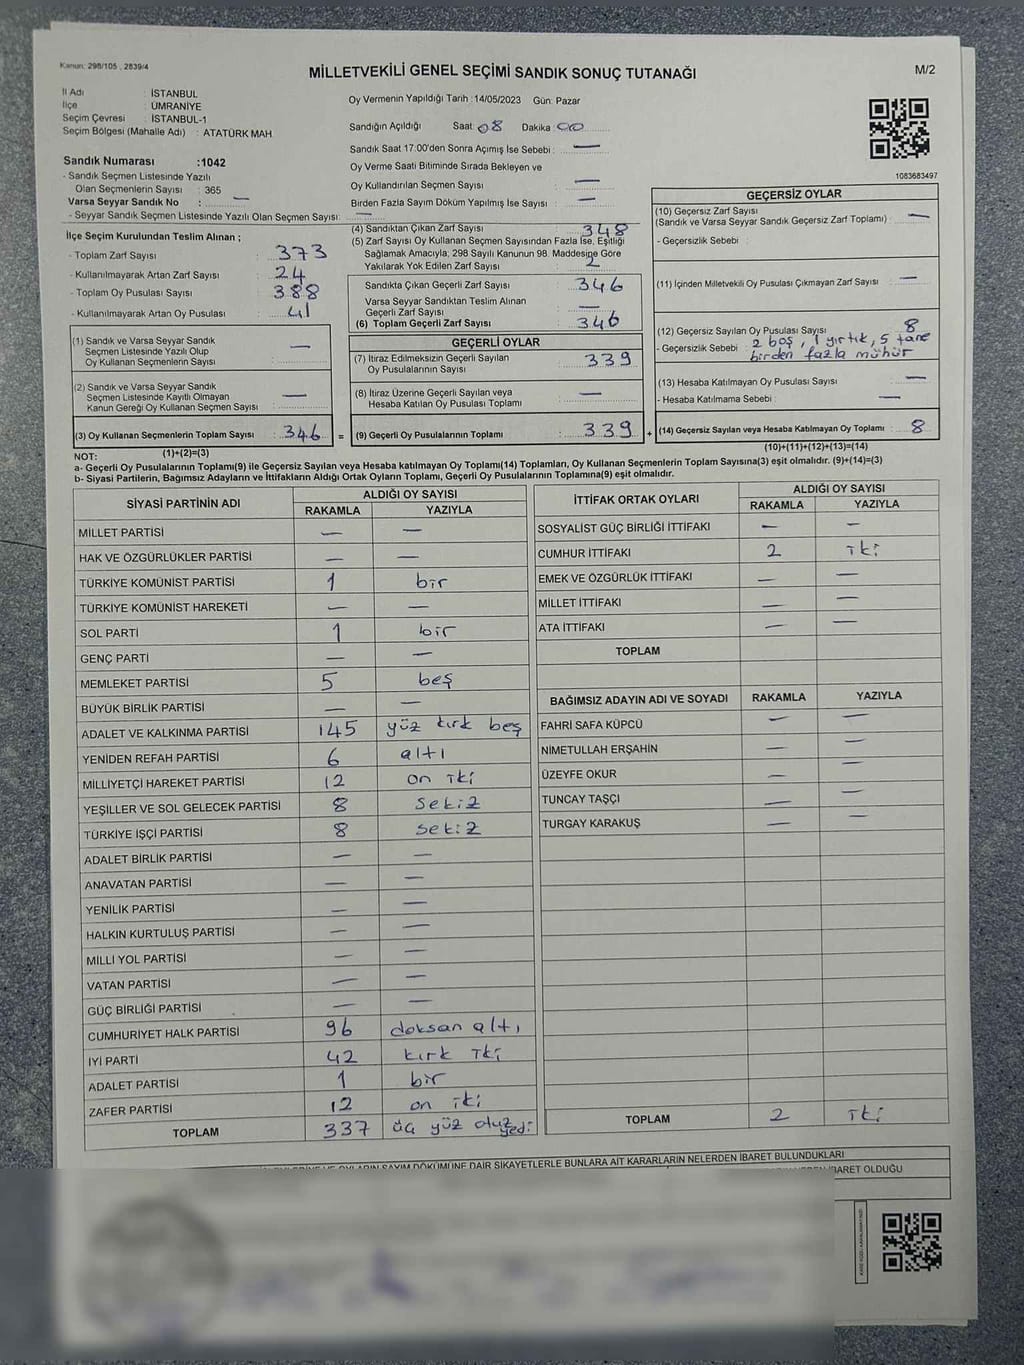 Kanun: 298/105 , 2839/4
MİLLETVEKİLİ GENEL SEÇİMİ SANDIK SONUÇ TUTANAĞI
M/2
İl Adı : İSTANBUL
İlçe : ÜMRANİYE
Seçim Çevresi : İSTANBUL-1
Seçim Bölgesi (Mahalle Adı) : ATATÜRK MAH.
Sandık Numarası :1042
- Sandık Seçmen Listesinde Yazılı
Olan Seçmenlerin Sayısı : 365
Varsa Seyyar Sandık No : —
- Seyyar Sandık Seçmen Listesinde Yazılı Olan Seçmen Sayısı: —
Oy Vermenin Yapıldığı Tarih :14/05/2023 Gün: Pazar
Sandığın Açıldığı Saat: 08 Dakika: 00
Sandık Saat 17:00'den Sonra Açılmış İse Sebebi : —
Oy Verme Saati Bitiminde Sırada Bekleyen ve
Oy Kullandırılan Seçmen Sayısı : —
Birden Fazla Sayım Döküm Yapılmış İse Sayısı : —
1083683497
İlçe Seçim Kurulundan Teslim Alınan ;
- Toplam Zarf Sayısı : 373
- Kullanılmayarak Artan Zarf Sayısı : 24
- Toplam Oy Pusulası Sayısı : 388
- Kullanılmayarak Artan Oy Pusulası : 41
(1) Sandık ve Varsa Seyyar Sandık
Seçmen Listesinde Yazılı Olup
Oy Kullanan Seçmenlerin Sayısı : —
(2) Sandık ve Varsa Seyyar Sandık
Seçmen Listesinde Kayıtlı Olmayan
Kanun Gereği Oy Kullanan Seçmen Sayısı : —
(3) Oy Kullanan Seçmenlerin Toplam Sayısı : 346 =
(1)+(2)=(3)
(4) Sandıktan Çıkan Zarf Sayısı : 348
(5) Zarf Sayısı Oy Kullanan Seçmen Sayısından Fazla İse, Eşitliği
Sağlamak Amacıyla, 298 Sayılı Kanunun 98. Maddesine Göre
Yakılarak Yok Edilen Zarf Sayısı : 2
Sandıkta Çıkan Geçerli Zarf Sayısı : 346
Varsa Seyyar Sandıktan Teslim Alınan
Geçerli Zarf Sayısı : —
(6) Toplam Geçerli Zarf Sayısı : 346
GEÇERLİ OYLAR
(7) İtiraz Edilmeksizin Geçerli Sayılan
Oy Pusulalarının Sayısı : 339
(8) İtiraz Üzerine Geçerli Sayılan veya
Hesaba Katılan Oy Pusulası Toplamı : —
(9) Geçerli Oy Pusulalarının Toplamı : 339 +
GEÇERSİZ OYLAR
(10) Geçersiz Zarf Sayısı
(Sandık ve Varsa Seyyar Sandık Geçersiz Zarf Toplamı) : —
- Geçersizlik Sebebi :
(11) İçinden Milletvekili Oy Pusulası Çıkmayan Zarf Sayısı : —
(12) Geçersiz Sayılan Oy Pusulası Sayısı : 8
- Geçersizlik Sebebi : 2 boş, 1 yırtık, 5 tane
birden fazla mühür
(13) Hesaba Katılmayan Oy Pusulası Sayısı : —
- Hesaba Katılmama Sebebi : —
(14) Geçersiz Sayılan veya Hesaba Katılmayan Oy Toplamı : 8
(10)+(11)+(12)+(13)=(14)
NOT:
a- Geçerli Oy Pusulalarının Toplamı(9) ile Geçersiz Sayılan veya Hesaba katılmayan Oy Toplamı(14) Toplamları, Oy Kullanan Seçmenlerin Toplam Sayısına(3) eşit olmalıdır. (9)+(14)=(3)
b- Siyasi Partilerin, Bağımsız Adayların ve İttifakların Aldığı Ortak Oyların Toplamı, Geçerli Oy Pusulalarının Toplamına(9) eşit olmalıdır.
SİYASİ PARTİNİN ADI ALDIĞI OY SAYISI
RAKAMLA YAZIYLA
MİLLET PARTİSİ — —
HAK VE ÖZGÜRLÜKLER PARTİSİ — —
TÜRKİYE KOMÜNİST PARTİSİ 1 bir
TÜRKİYE KOMÜNİST HAREKETİ — —
SOL PARTİ 1 bir
GENÇ PARTİ — —
MEMLEKET PARTİSİ 5 beş
BÜYÜK BİRLİK PARTİSİ — —
ADALET VE KALKINMA PARTİSİ 145 yüz kırk beş
YENİDEN REFAH PARTİSİ 6 altı
MİLLİYETÇİ HAREKET PARTİSİ 12 on iki
YEŞİLLER VE SOL GELECEK PARTİSİ 8 sekiz
TÜRKİYE İŞÇİ PARTİSİ 8 sekiz
ADALET BİRLİK PARTİSİ — —
ANAVATAN PARTİSİ — —
YENİLİK PARTİSİ — —
HALKIN KURTULUŞ PARTİSİ — —
MİLLİ YOL PARTİSİ — —
VATAN PARTİSİ — —
GÜÇ BİRLİĞİ PARTİSİ — —
CUMHURİYET HALK PARTİSİ 96 doksan altı
İYİ PARTİ 42 kırk iki
ADALET PARTİSİ 1 bir
ZAFER PARTİSİ 12 on iki
TOPLAM 337 üç yüz otuz yedi
İTTİFAK ORTAK OYLARI ALDIĞI OY SAYISI
RAKAMLA YAZIYLA
SOSYALİST GÜÇ BİRLİĞİ İTTİFAKI — —
CUMHUR İTTİFAKI 2 iki
EMEK VE ÖZGÜRLÜK İTTİFAKI — —
MİLLET İTTİFAKI — —
ATA İTTİFAKI — —
TOPLAM
BAĞIMSIZ ADAYIN ADI VE SOYADI RAKAMLA YAZIYLA
FAHRİ SAFA KÜPCÜ — —
NİMETULLAH ERŞAHİN — —
ÜZEYFE OKUR — —
TUNCAY TAŞÇI — —
TURGAY KARAKUŞ — —
TOPLAM 2 iki
SAYIM DÖKÜMÜNE DAİR ŞİKAYETLERLE BUNLARA AİT KARARLARIN NELERDEN İBARET BULUNDUKLARI
İBARET OLDUĞU